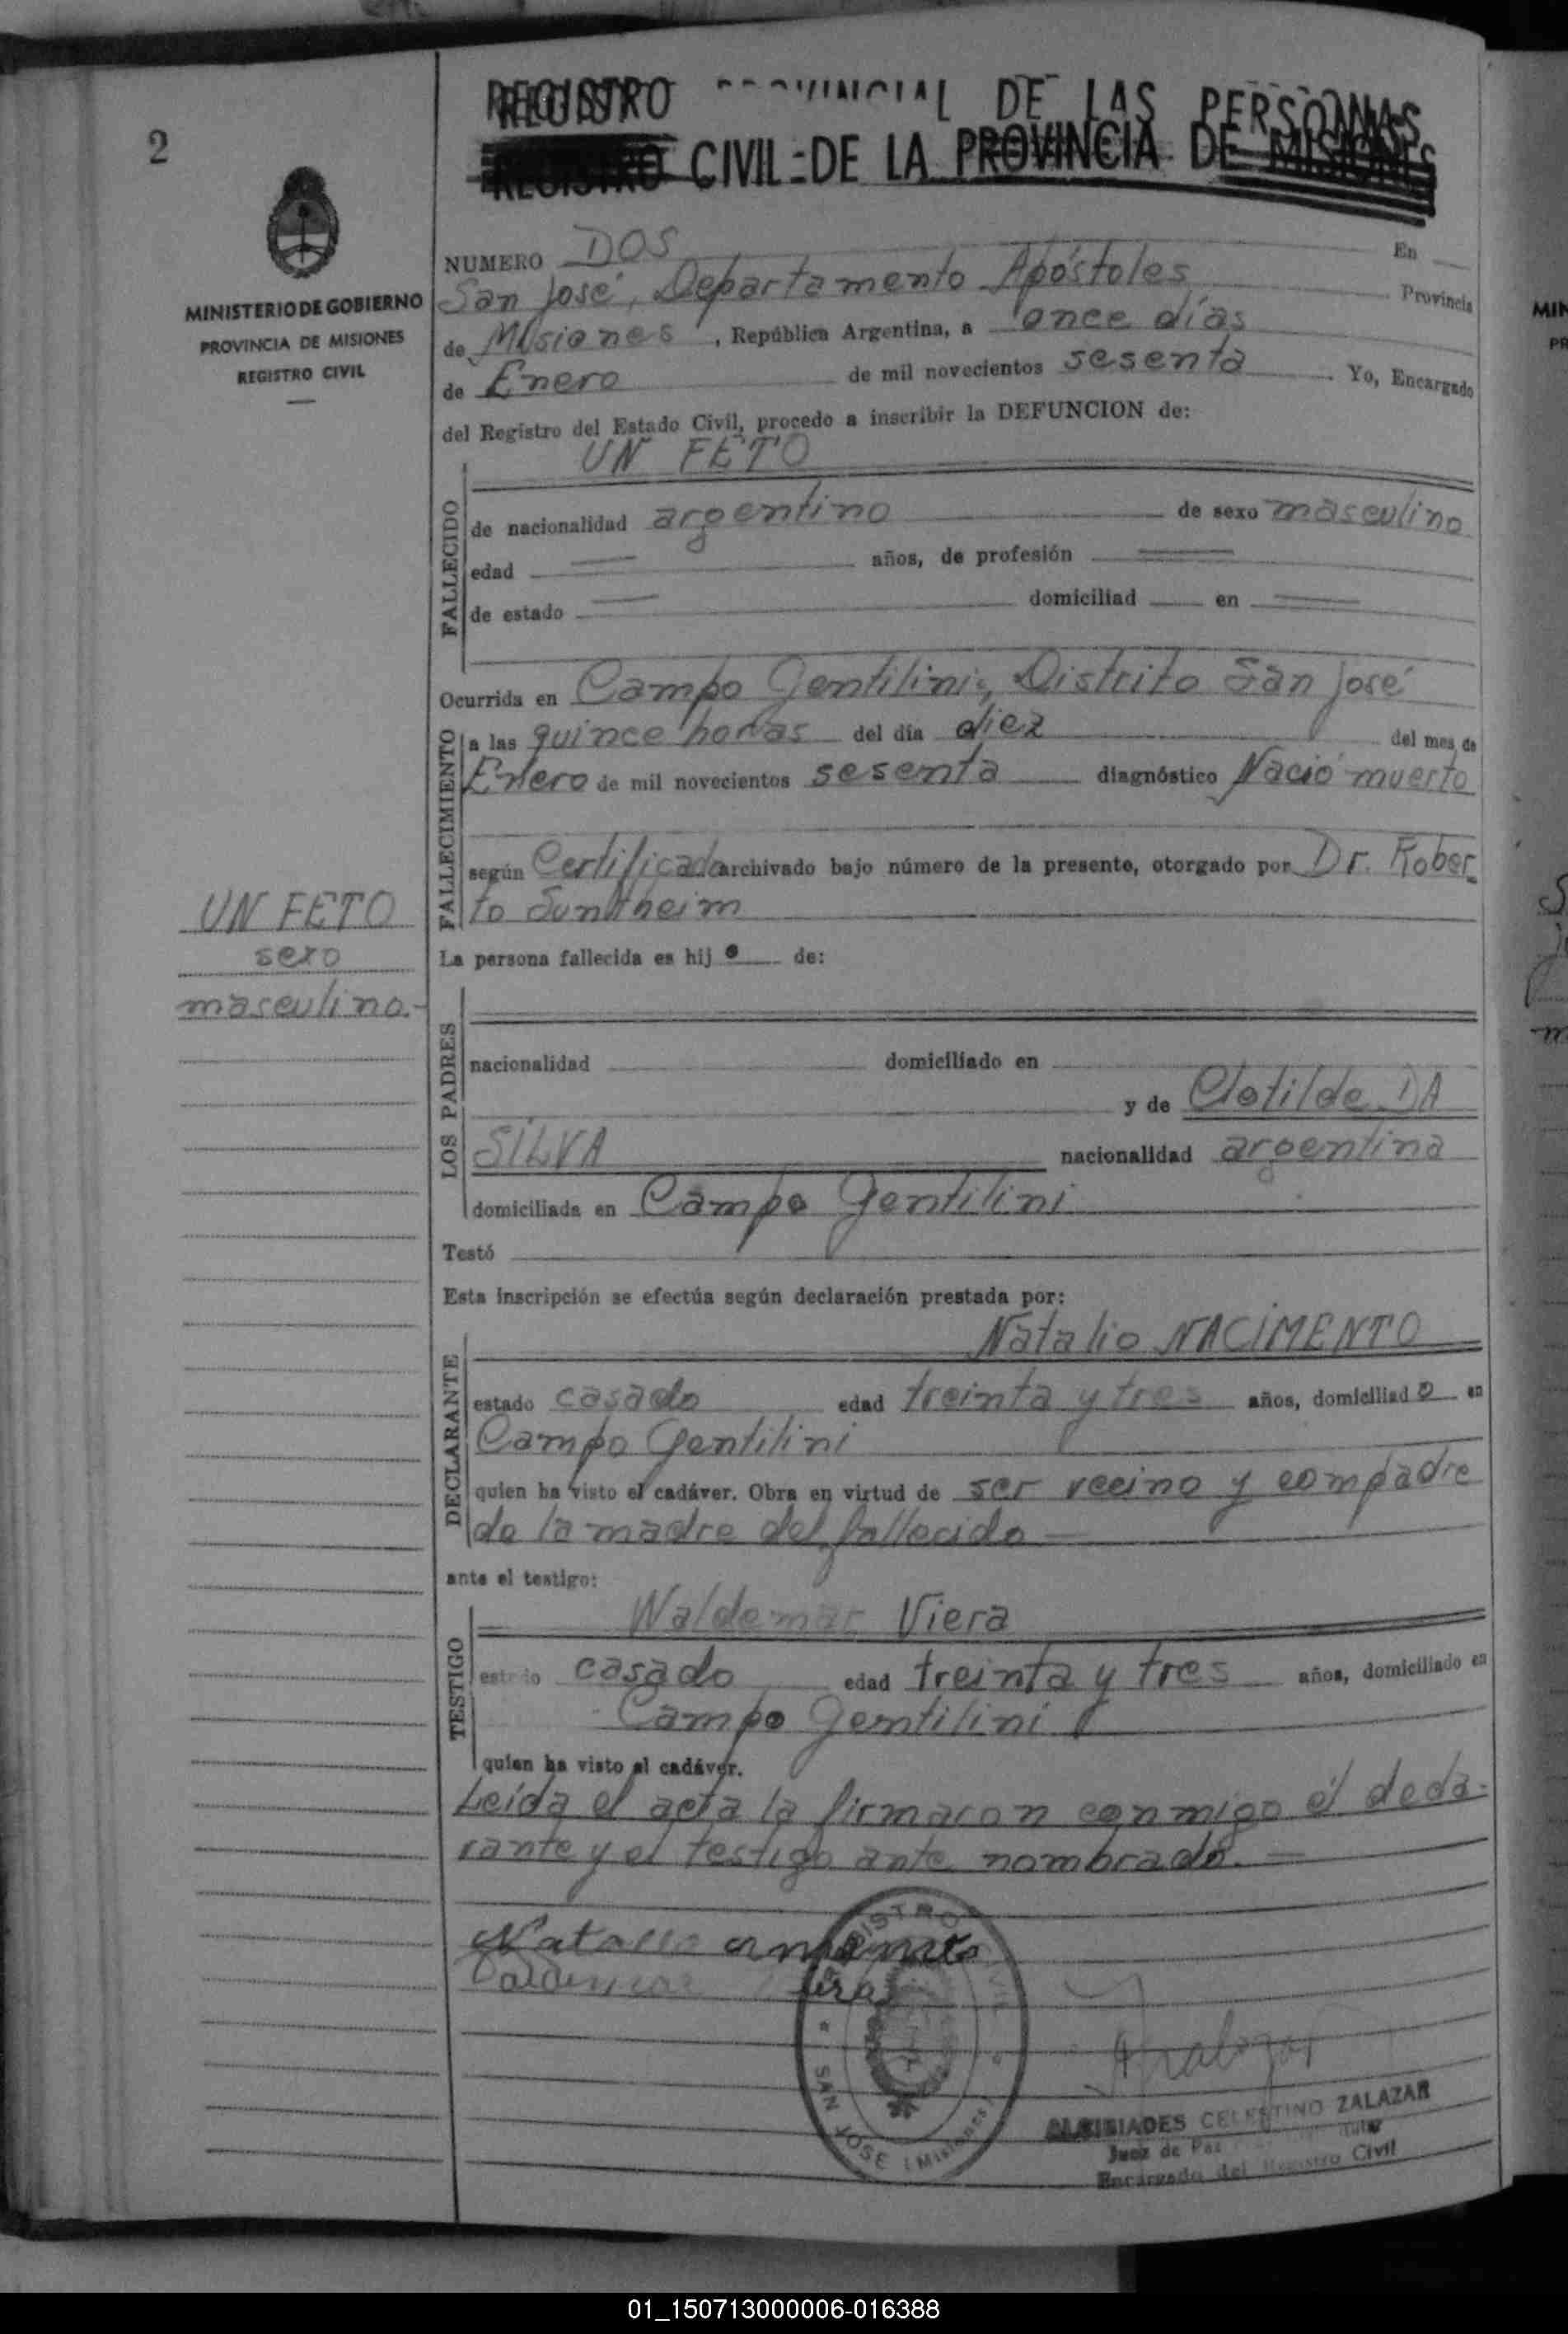 2
REGISTRO PROVINCIAL DE LAS PERSONAS
REGISTRO CIVIL DE LA PROVINCIA DE MISIONES
MINISTERIO DE GOBIERNO
PROVINCIA DE MISIONES
REGISTRO CIVIL
NUMERO DOS En
San José, Departamento Apóstoles Provincia
de Misiones, República Argentina, a once días
de Enero de mil novecientos sesenta Yo, Encargado
del Registro del Estado Civil, procedo a inscribir la DEFUNCION de:
UN FETO
FALLECIDO
de nacionalidad argentino de sexo masculino
edad años, de profesión
de estado domiciliad en
Ocurrida en Campo Gentilini, Distrito San José
FALLECIMIENTO
a las quince horas del día diez del mes de
Enero de mil novecientos sesenta diagnóstico Nació muerto
según Certificado archivado bajo número de la presente, otorgado por Dr. Rober
to
UN FETO
sexo
masculino.-
La persona fallecida es hijo de:
LOS PADRES
nacionalidad domiciliado en
y de Clotilde DA
SILVA nacionalidad argentina
domiciliada en Campo Gentilini
Testó
Esta inscripción se efectúa según declaración prestada por:
Natalio NACIMENTO
DECLARANTE
estado casado edad treinta y tres años, domiciliado en
Campo Gentilini
quien ha visto el cadáver. Obra en virtud de ser vecino y compadre
de la madre del fallecido
ante el testigo:
Waldemar Viera
TESTIGO
estado casado edad treinta y tres años, domiciliado en
Campo Gentilini
quien ha visto el cadáver.
Leída el acta la firmaron conmigo el decla-
rante y el testigo ante nombrado.
REGISTRO CIVIL
SAN JOSE (Misiones)
ALCIBIADES CELESTINO ZALAZAR
Juez de Paz Titular
Encargado del Registro Civil
01_150713000006-016388